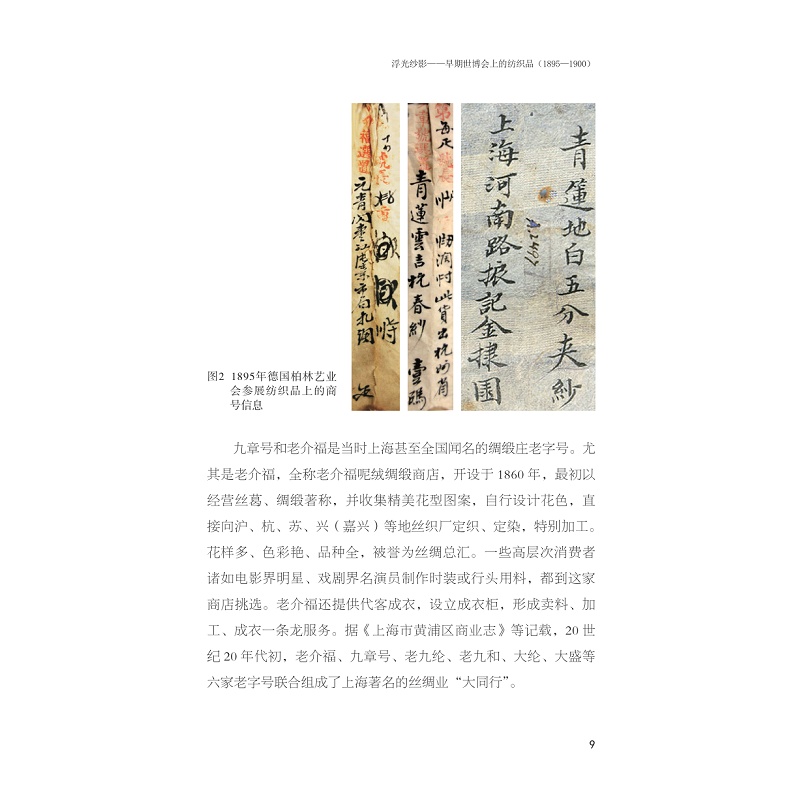 浮光纱影——早期世博会上的纺织品（1895—1900）
青蓮雲吉杭春紗
青蓮地白五分夾紗
上海河南路振記金捸園
图2 1895年德国柏林艺业
会参展纺织品上的商
号信息
九章号和老介福是当时上海甚至全国闻名的绸缎庄老字号。尤
其是老介福，全称老介福呢绒绸缎商店，开设于1860年，最初以
经营丝葛、绸缎著称，并收集精美花型图案，自行设计花色，直
接向沪、杭、苏、兴（嘉兴）等地丝织厂定织、定染，特别加工。
花样多、色彩艳、品种全，被誉为丝绸总汇。一些高层次消费者
诸如电影界明星、戏剧界名演员制作时装或行头用料，都到这家
商店挑选。老介福还提供代客成衣，设立成衣柜，形成卖料、加
工、成衣一条龙服务。据《上海市黄浦区商业志》等记载，20世
纪20年代初，老介福、九章号、老九纶、老九和、大纶、大盛等
六家老字号联合组成了上海著名的丝绸业“大同行”。
9